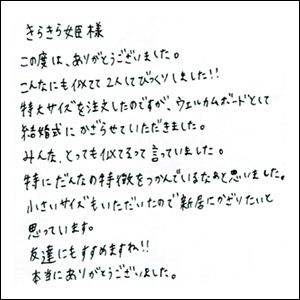 きらきら姫様
この度は、ありがとうございました。
こんなにも似てて2人してびっくりしました!!
特大サイズを注文したのですが、ウェルカムボードとして
結婚式にかざらせていただきました。
みんな、とっても似てるって言っていました。
特にだんなの特徴をつかんでいるなぁと思いました。
小さいサイズもいただいたので新居にかざりたいと
思っています。
友達にもすすめますね!!
本当にありがとうございました。